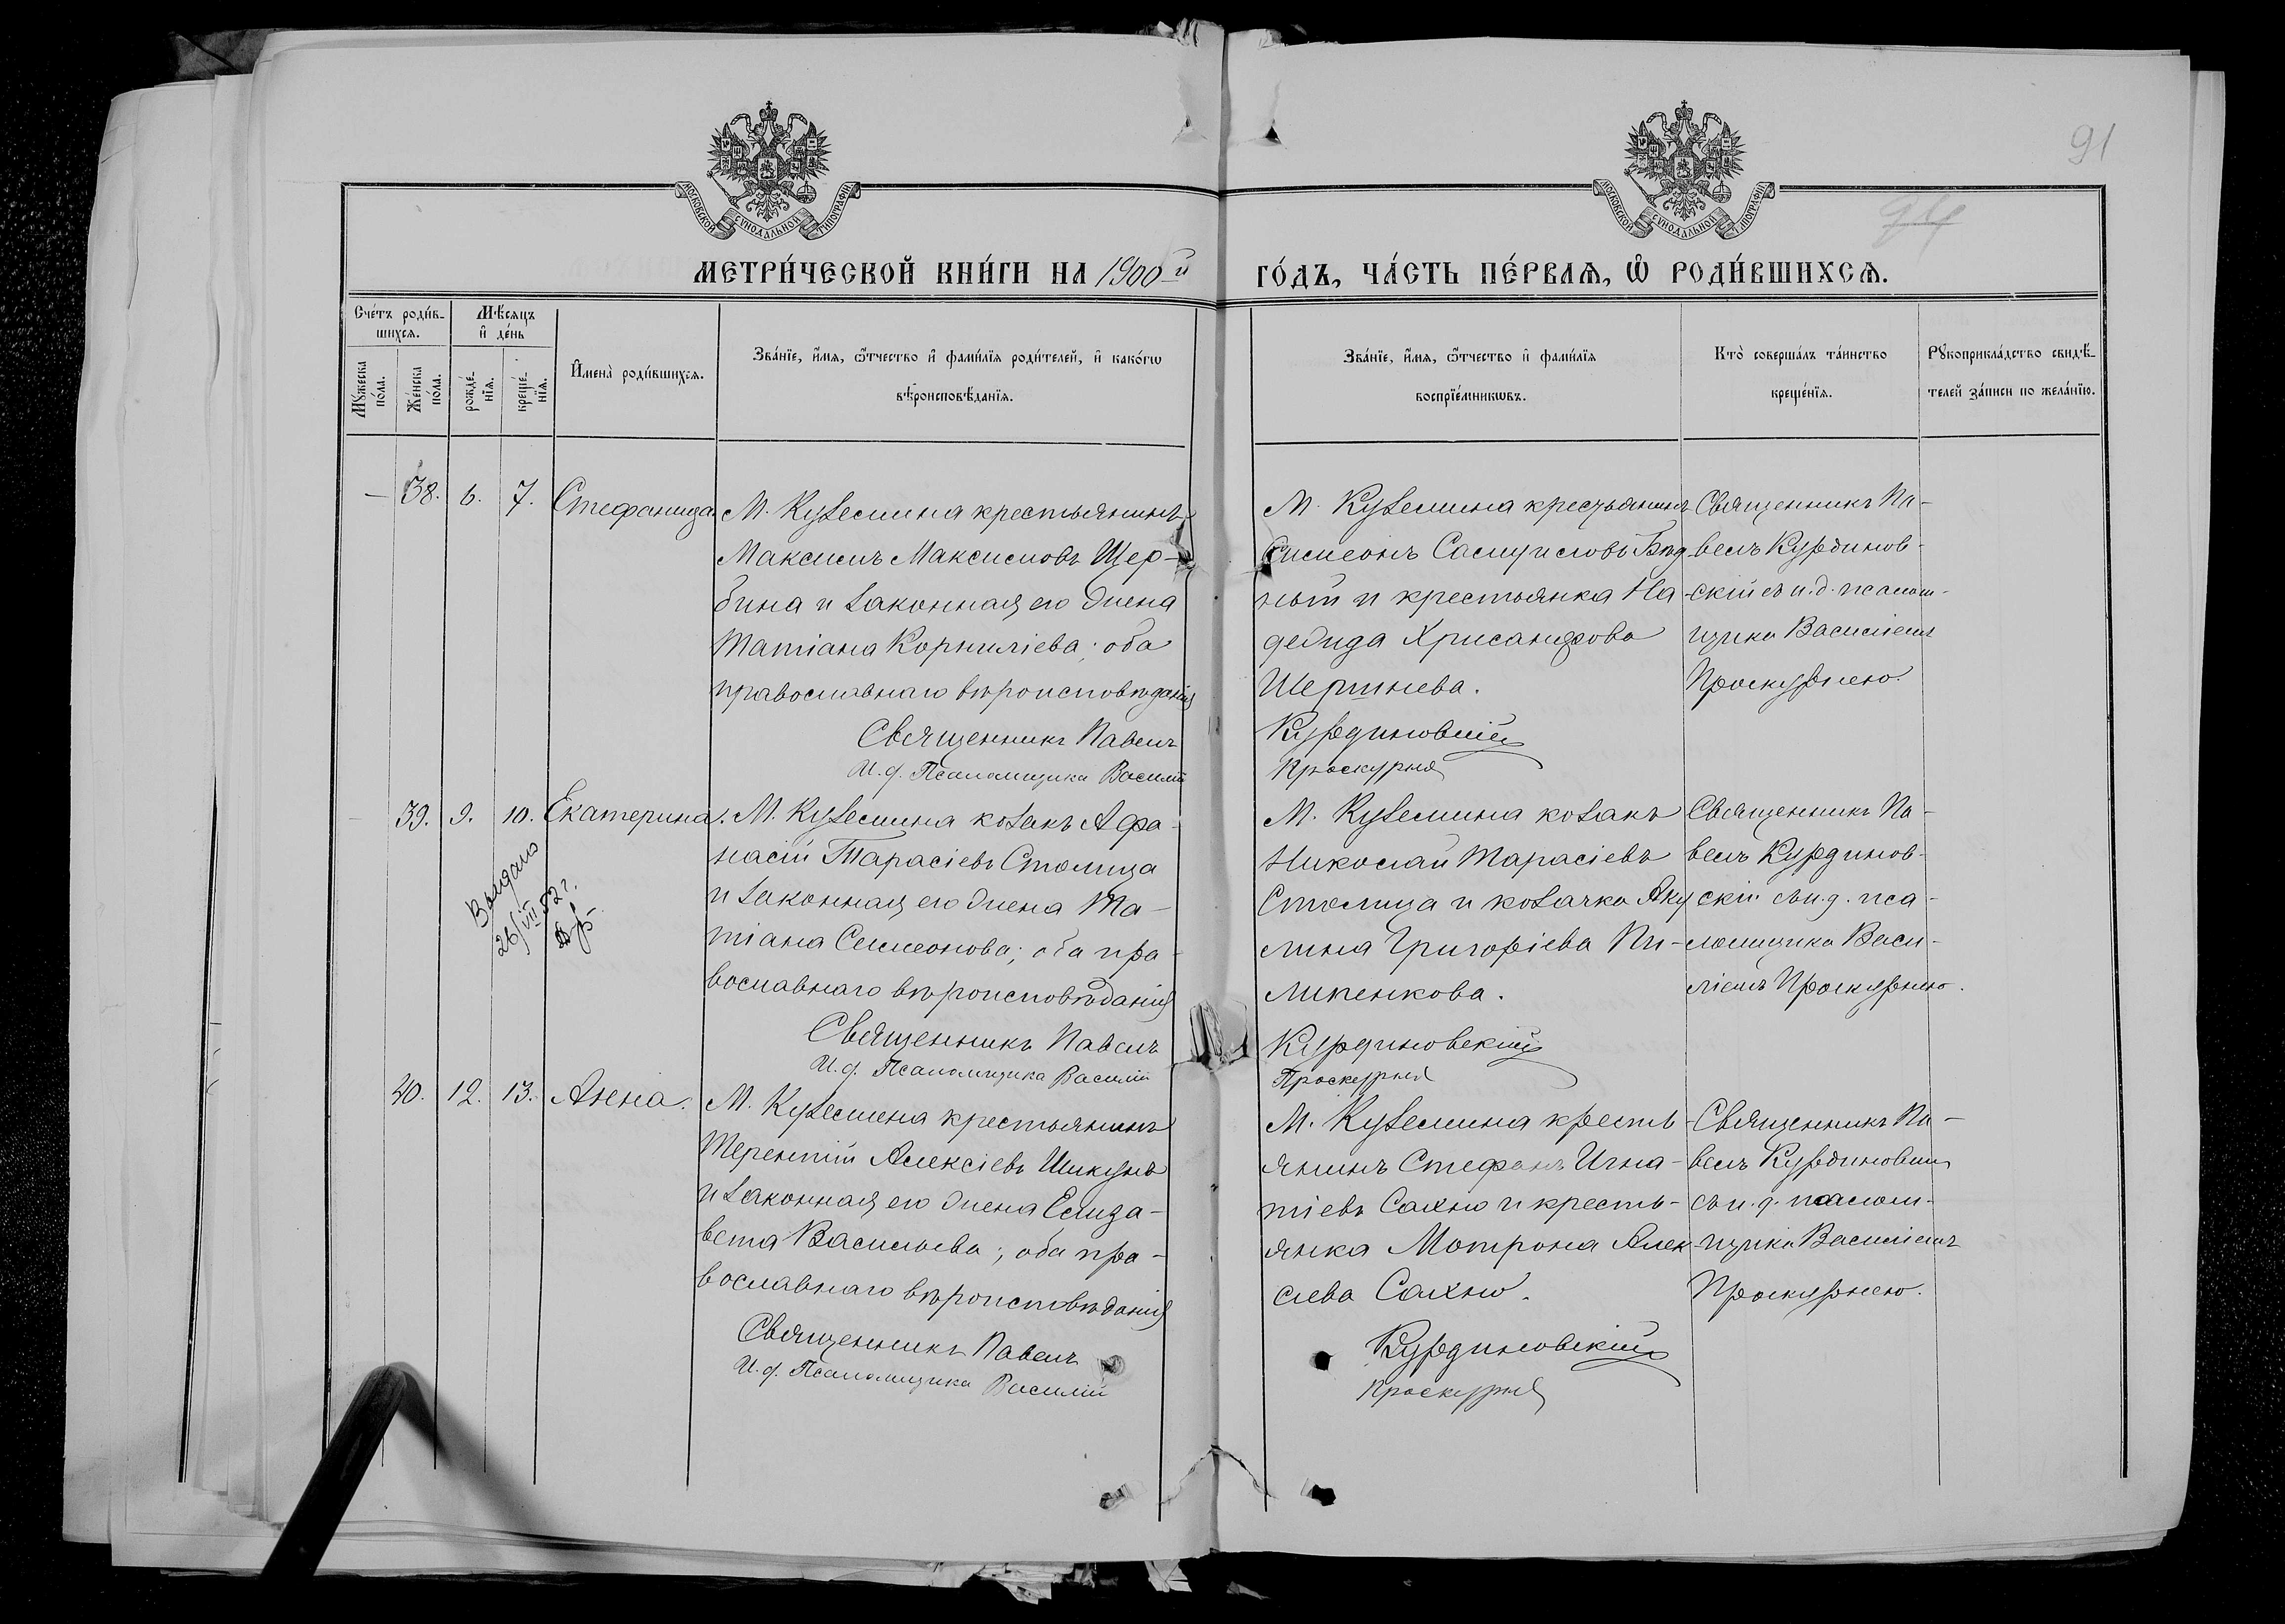 91
МОСКОВСКОЙ СУНОДАЛЬНОЙ ТИПОГРАФІИ
МОСКОВСКОЙ СУНОДАЛЬНОЙ ТИПОГРАФІИ
МЕТРИ́ЧЕСКОЙ КНИ́ГИ НА 1900й
ГО́ДЪ, ЧА́СТЬ ПЕ́РВАѦ, Ѽ РОДИ́ВШИХСѦ.
Сче́тъ роди́в-
шихсѧ.
Мꙋ́жеска
по́ла.
Же́нска
по́ла.
Мѣ́сѧцъ
и҆ де́нь
рожде́-
нїѧ.
креще́-
нїѧ.
И҆мена̀ роди́вшихсѧ.
Зва́нїе, и҆́мѧ, ѻ҆́тчество и҆ фами́лїѧ роди́телей, и҆ како́гѡ
вѣ̀роисповѣ́данїѧ.
Зва́нїе, и҆́мѧ, ѻ҆́тчество и҆ фами́лїѧ
воспрїе́мникѡвъ.
Кто̀ соверша́лъ та́инство
креще́нїѧ.
Рꙋкоприкла́дство свидѣ́-
телей за́писи по жела́нїю.
— 38. 6. 7. Стефанида.
М. Куземина крестьянинъ
Максимъ Максимовъ Щер-
бина и законная его жена
Татіана Корниліева; оба
православнаго вѣроисповѣданія
Священникъ Павелъ
И. д. Псаломщика Василій
М. Куземина крестьянинъ
Симеонъ Бѣд-
ный и крестьянка На-
дежда Хрисанфова
Курдиновскій
Проскурня
Священникъ Па-
велъ Курдинов-
скій съ и. д. псалом-
щика Василіемъ
Проскурнею.
39. 9. 10. Екатерина.
Выдано
26/VII 52 г.
М. Куземина козакъ Афа-
насій Тарасіевъ Столица
и законная его жена Та-
тіана Симеонова; оба пра-
вославнаго вѣроисповѣданія
Священникъ Павелъ
И. д. Псаломщика Василій
М. Куземина козакъ
Николай Тарасіевъ
Столица и козачка Аку
лина Григоріева Пи-
липенкова.
Курдиновскій
Проскурня
Священникъ Па-
велъ Курдинов-
скій съ и. д. пса-
ломщика Васи-
ліемъ Проскурнею.
40. 12. 13. Анна.
М. Куземина крестьянинъ
Терентій Алексіевъ Шикунъ
и законная его жена Елиза-
вета Васильева; оба пра-
вославнаго вѣроисповѣданія
Священникъ Павелъ
И. д. Псаломщика Василій
М. Куземина кресть-
янинъ Стефанъ Игна-
тіевъ Сахно и кресть-
янка Мотрона Алек-
сіева Сахно.
Курдиновскій
Проскурня
Священникъ Па-
велъ Курдиновскій
съ и. д. псалом-
щика Василіемъ
Проскурнею.